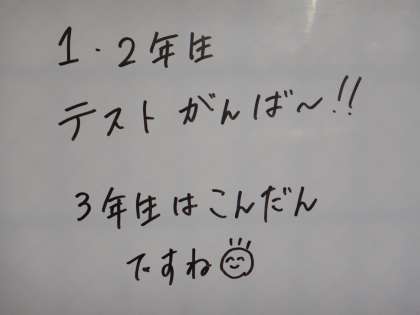 1・2年生
テストがんば〜!!
3年生はこんだん
ですね